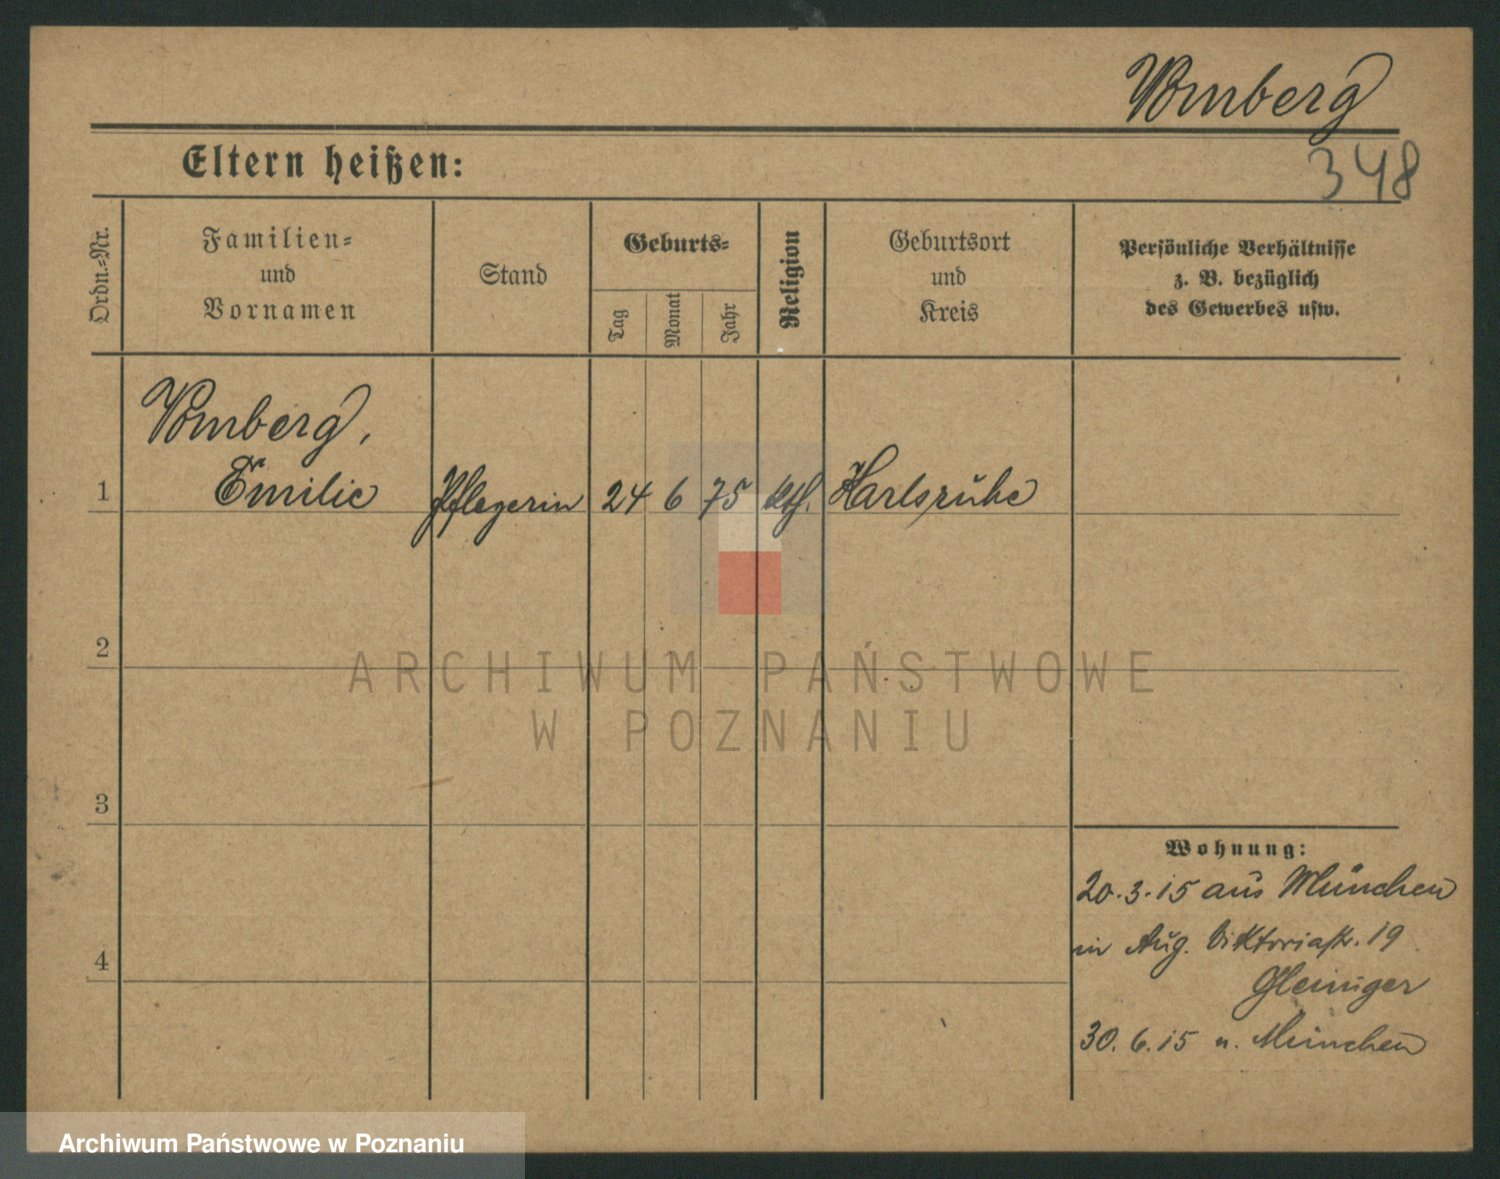 Vomberg
348
Eltern heißen:
Ordn.-Nr.
Familien-
und
Vornamen
Stand
Geburts-
Tag
Monat
Jahr
Religion
Geburtsort
und
Kreis
Persönliche Verhältnisse
z. B. bezüglich
des Gewerbes usw.
Vomberg,
1 Emilie Pflegerin 24 6 75 kth. Karlsruhe
2
3
4
Wohnung:
20.3.15 aus München
in Aug. Viktoriastr. 19
Gleiniger
30.6.15 n. München
ARCHIWUM PAŃSTWOWE
W POZNANIU
Archiwum Państwowe w Poznaniu